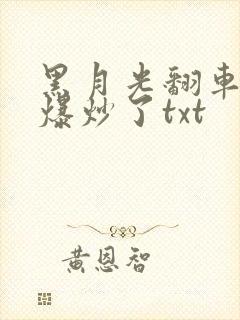 黑月光翻車
爆炒了txt
黄恩智